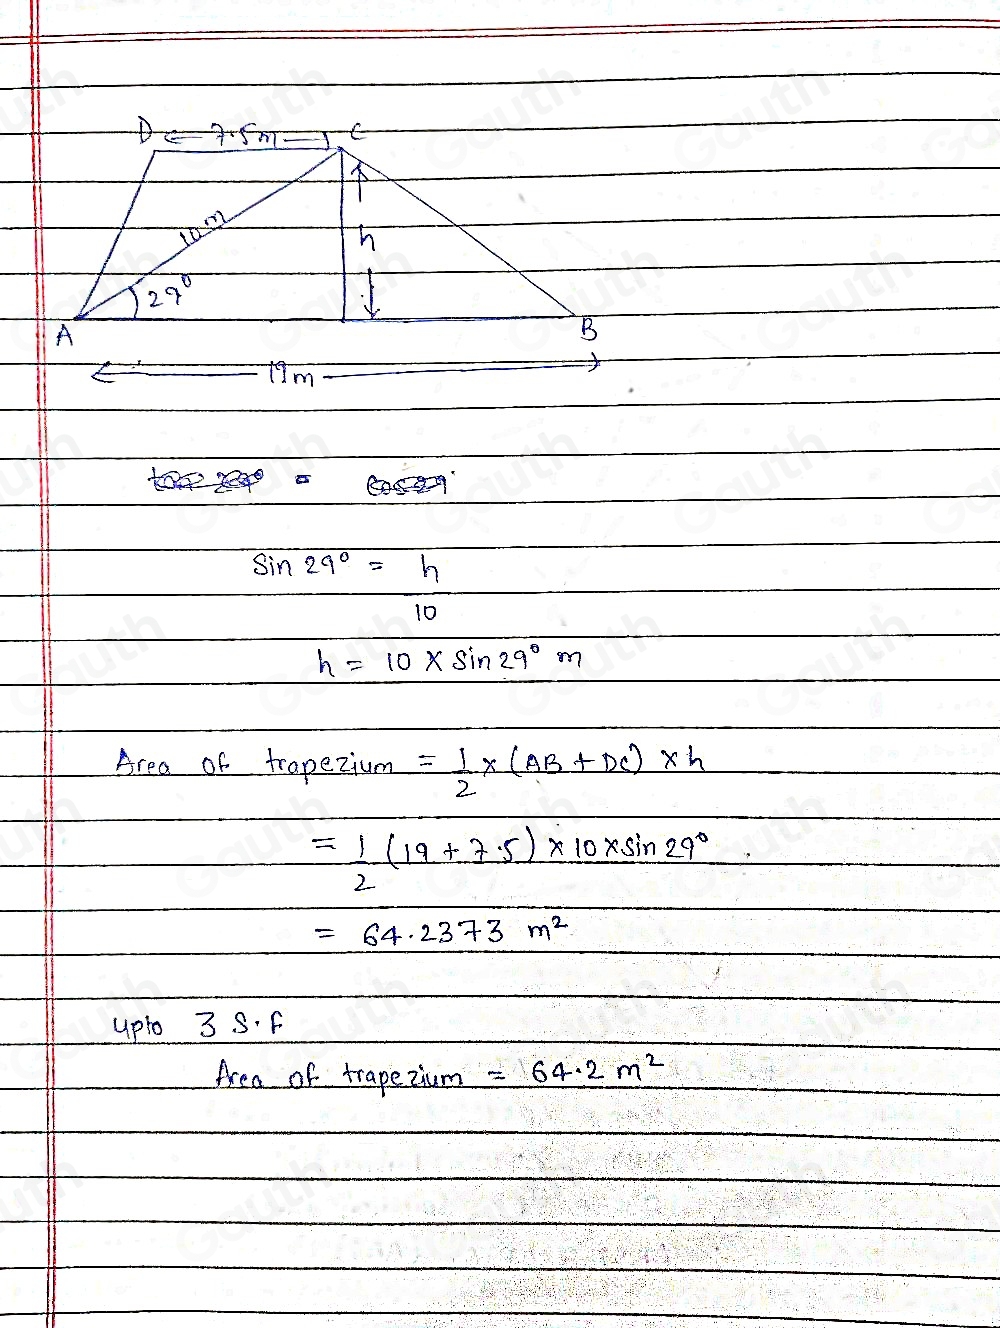 D ← 7.5m → C
10 m
h
29°
A
B
← 19m →
=
Sin 29° = h
10
h = 10 × Sin 29° m
Area of trapezium = 1/2 × (AB + DC) × h
= 1/2 (19 + 7.5) × 10 × sin 29°
= 64.2373 m²
upto 3 S.f
Area of trapezium = 64.2 m²